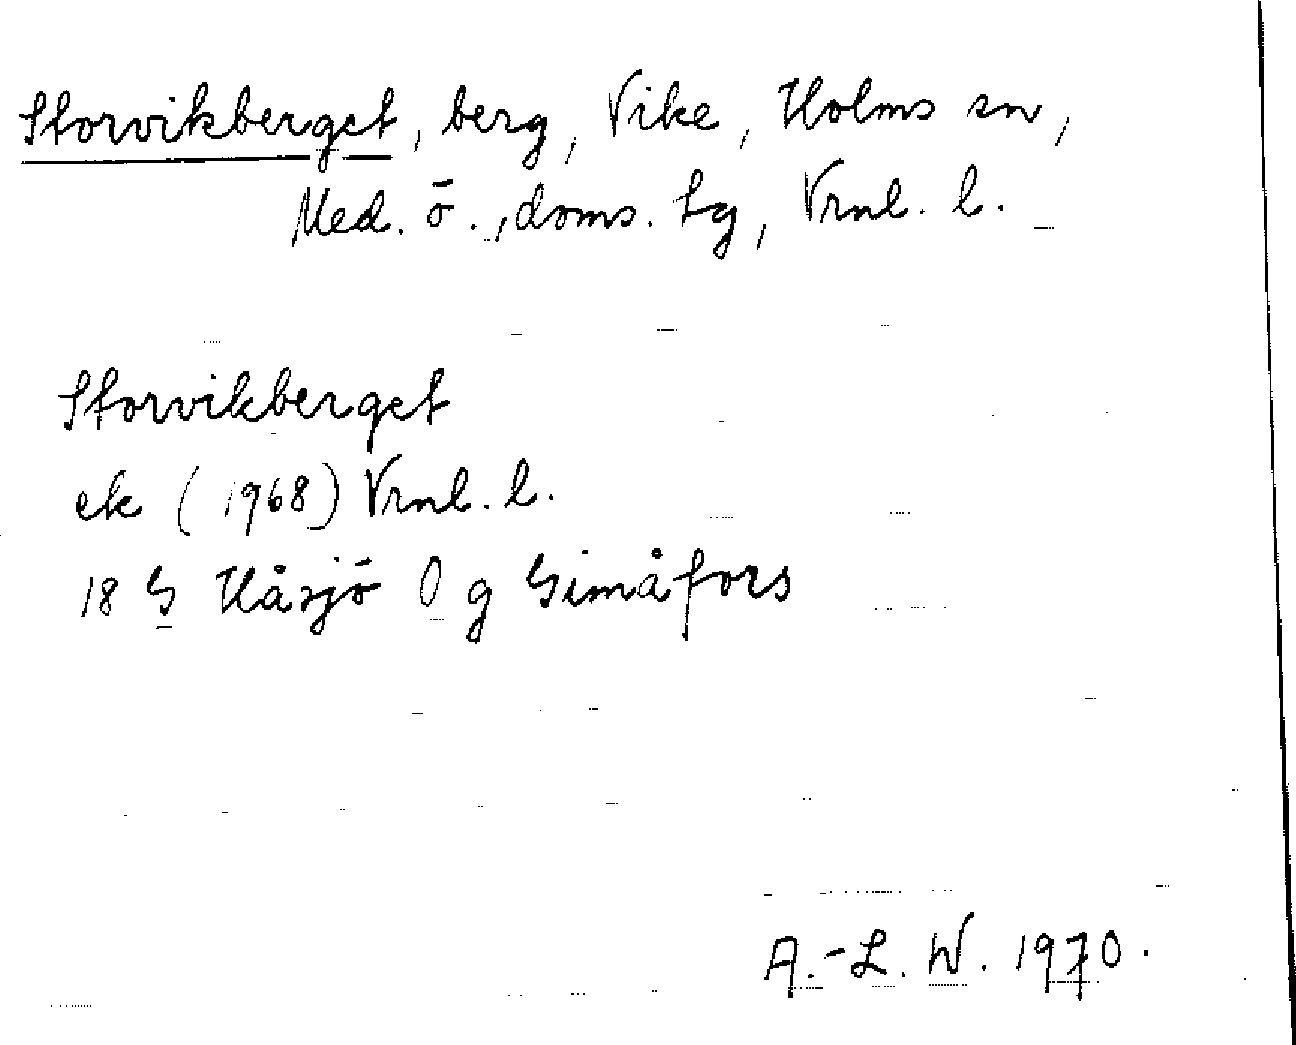 Storvikberget, berg, Vike, Holms sn,
Med. ö., doms. sg, Vrnl. l.
Storvikberget
ek (1968) Vrnl. l.
18 G Håsjö O g Gimåfors
A.-L. W. 1970.